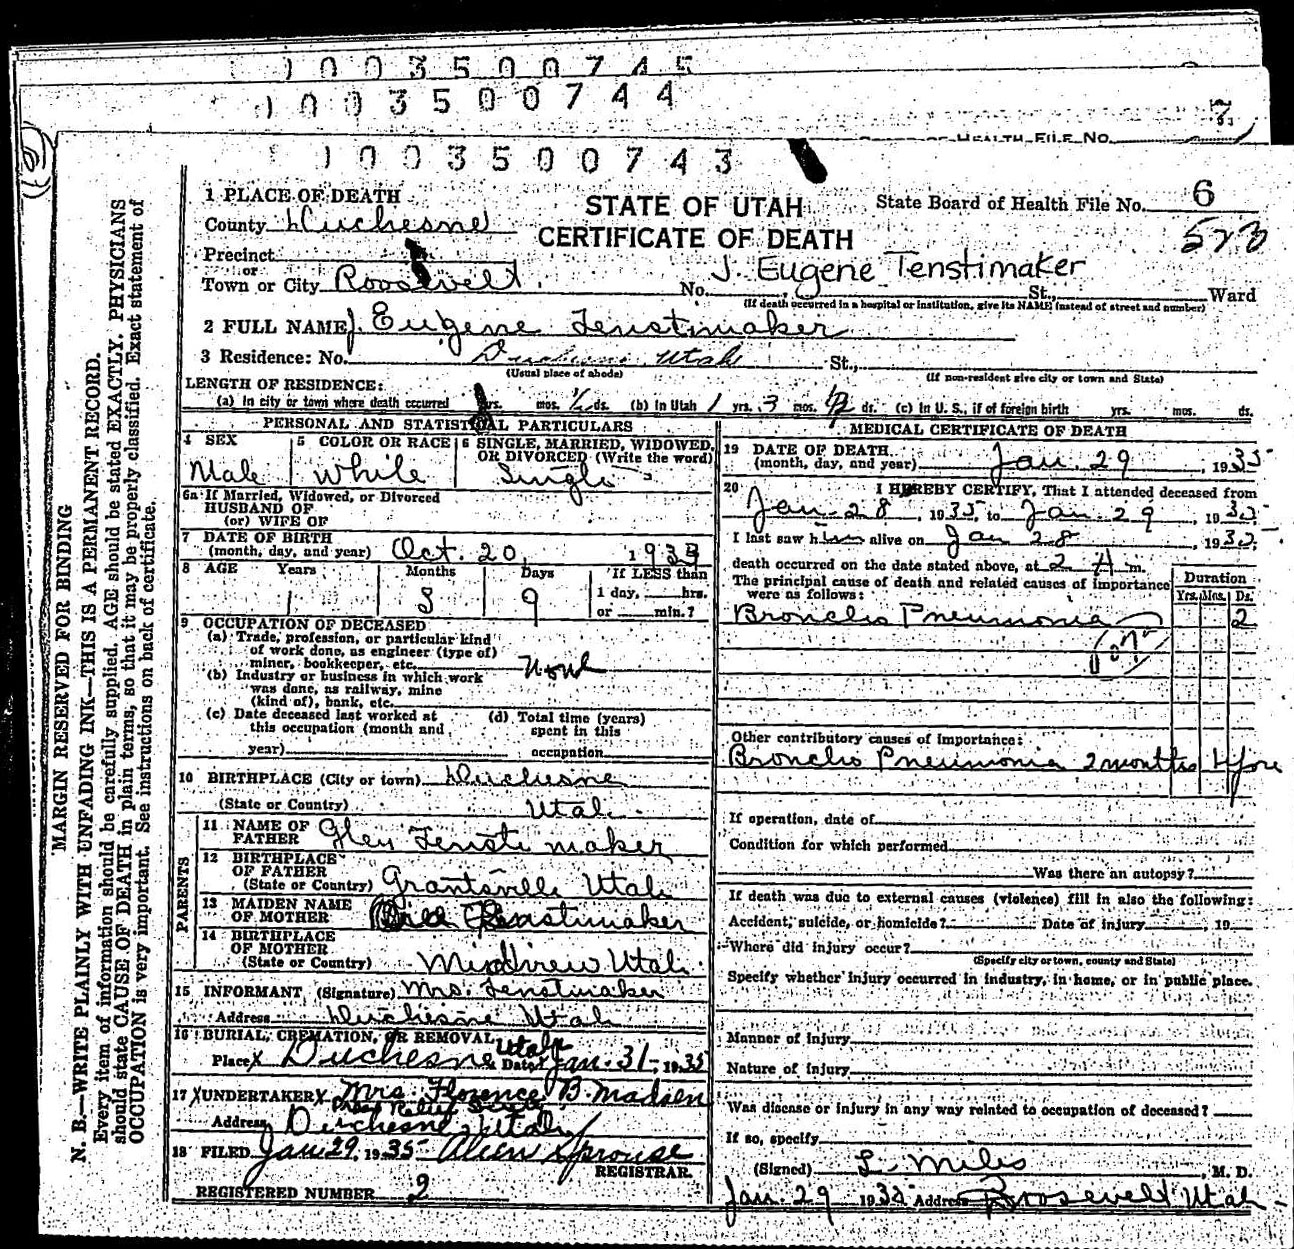 1003500745
1003500744
7
OF HEALTH FILE No.
1003500743
1 PLACE OF DEATH
STATE OF UTAH
CERTIFICATE OF DEATH
State Board of Health File No. 6
County Duchesne
Precinct
or
Town or City Roosevelt
J. Eugene Tenstimaker
No. St., Ward
(If death occurred in a hospital or institution, give its NAME instead of street and number)
2 FULL NAME J. Eugene Tenstimaker
3 Residence: No. Duchesne Utah St.,
(Usual place of abode) (If non-resident give city or town and State)
LENGTH OF RESIDENCE:
(a) In city or town where death occurred yrs. mos. ½ ds. (b) In Utah 1 yrs. 3 mos. ds. (c) In U. S., if of foreign birth yrs. mos. ds.
PERSONAL AND STATISTICAL PARTICULARS
4 SEX Male
5 COLOR OR RACE White
6 SINGLE, MARRIED, WIDOWED, OR DIVORCED (Write the word) Single
6a If Married, Widowed, or Divorced
HUSBAND OF
(or) WIFE OF
7 DATE OF BIRTH
(month, day, and year) Oct. 20, 1933
8 AGE Years Months Days If LESS than
1 3 9 1 day, hrs.
or min.?
9 OCCUPATION OF DECEASED
(a) Trade, profession, or particular kind
of work done, as engineer (type of)
miner, bookkeeper, etc. None
(b) Industry or business in which work
was done, as railway, mine
(kind of), bank, etc.
(c) Date deceased last worked at
this occupation (month and
year)
(d) Total time (years)
spent in this
occupation
10 BIRTHPLACE (City or town) Duchesne
(State or Country) Utah
PARENTS
11 NAME OF
FATHER Glen Tenstimaker
12 BIRTHPLACE
OF FATHER
(State or Country) Grantsville Utah
13 MAIDEN NAME
OF MOTHER Tenstimaker
14 BIRTHPLACE
OF MOTHER
(State or Country) Utah
15 INFORMANT (Signature) Mrs. Tenstimaker
Address Duchesne Utah
16 BURIAL, CREMATION, OR REMOVAL
Place X Duchesne Utah Date X Jan. 31, 1935
17 X UNDERTAKER X Mrs. Florence B. Madsen
Address Duchesne, Utah
18 FILED Jan 29, 1935 Sprouse
REGISTRAR
REGISTERED NUMBER 2
MEDICAL CERTIFICATE OF DEATH
19 DATE OF DEATH
(month, day, and year) Jan. 29, 1935
20 I HEREBY CERTIFY, That I attended deceased from
Jan 28, 1935, to Jan. 29, 1935
I last saw him alive on Jan 28, 1935,
death occurred on the date stated above, at 2 A m.
The principal cause of death and related causes of importance
were as follows:
Duration
Yrs. Mos. Ds.
Broncho Pneumonia 2
107a
Other contributory causes of importance:
Broncho Pneumonia 2 months before
If operation, date of
Condition for which performed
Was there an autopsy?
If death was due to external causes (violence) fill in also the following:
Accident, suicide, or homicide? Date of injury, 19
Where did injury occur?
(Specify city or town, county and State)
Specify whether injury occurred in industry, in home, or in public place.
Manner of injury
Nature of injury
Was disease or injury in any way related to occupation of deceased?
If so, specify
(Signed) L. Miles, M. D.
Jan. 29 1935 Address Roosevelt Utah
MARGIN RESERVED FOR BINDING
N. B.—WRITE PLAINLY WITH UNFADING INK—THIS IS A PERMANENT RECORD.
Every item of information should be carefully supplied. AGE should be stated EXACTLY. PHYSICIANS
should state CAUSE OF DEATH in plain terms, so that it may be properly classified. Exact statement of
OCCUPATION is very important. See instructions on back of certificate.